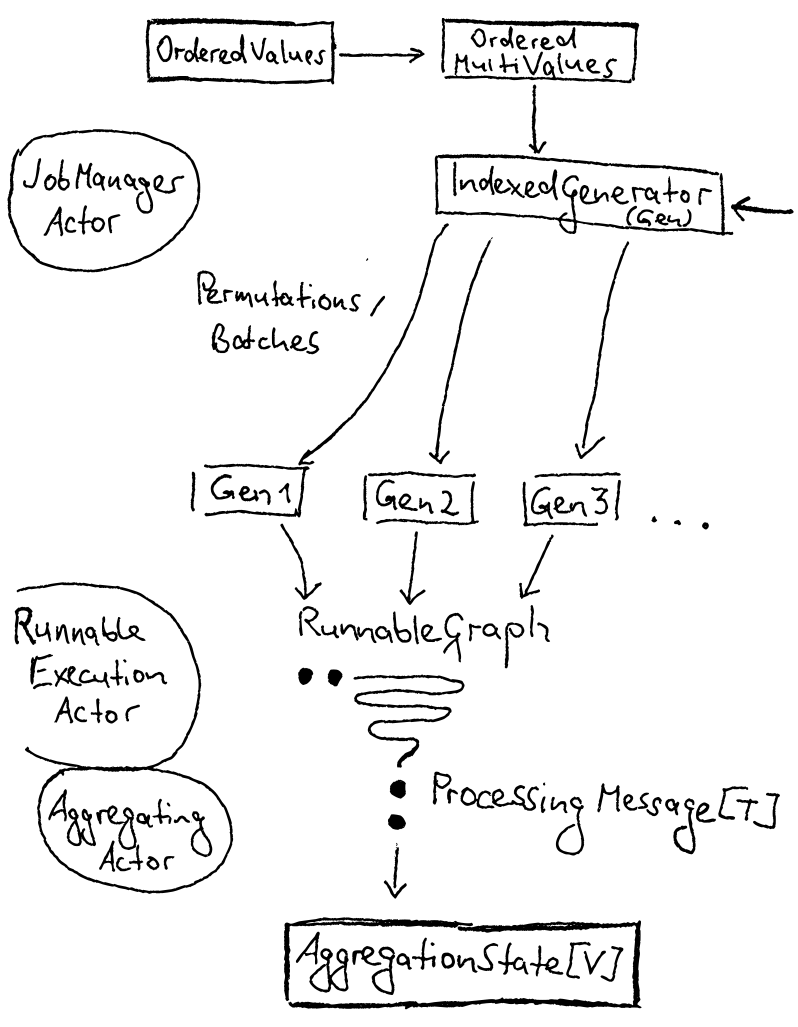 OrderedValues
Ordered
MultiValues
JobManager
Actor
IndexedGenerator
(Gen)
Permutations /
Batches
Gen1
Gen2
Gen3
...
Runnable
Execution
Actor
RunnableGraph
Processing Message[T]
Aggregating
Actor
AggregationState[V]